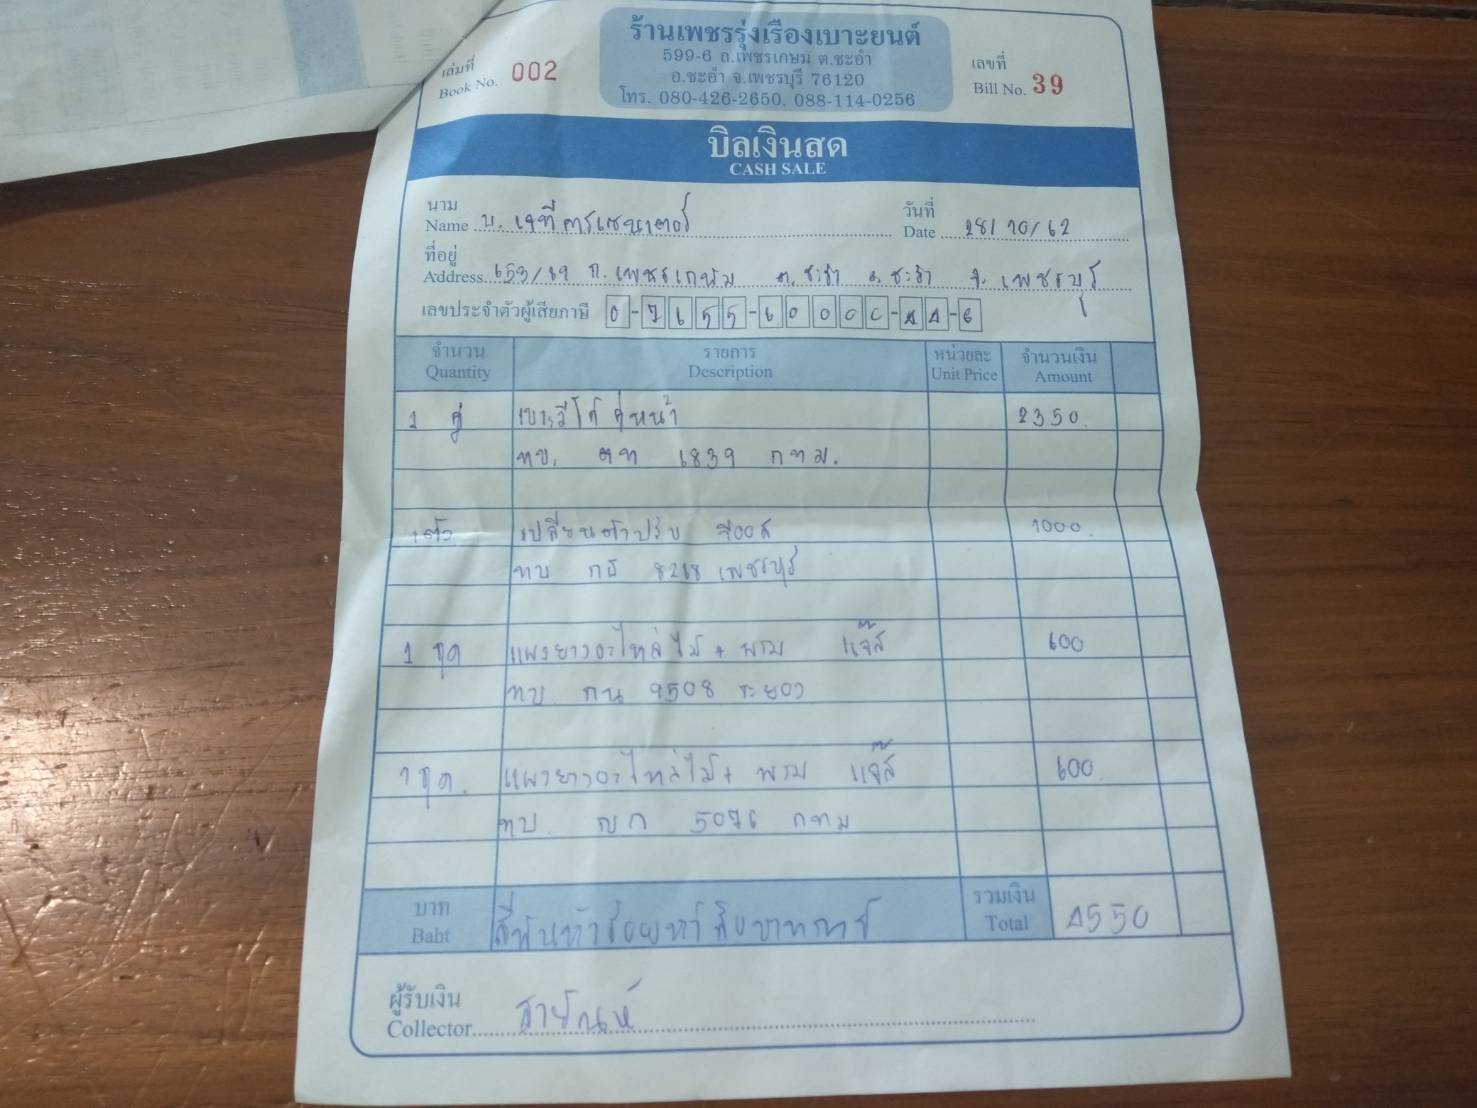 ร้านเพชรรุ่งเรืองเบาะยนต์
599-6 ถ.เพชรเกษม ต.ชะอำ
อ.ชะอำ จ.เพชรบุรี 76120
โทร. 080-426-2650, 088-114-0256
เล่มที่
Book No. 002
เลขที่
Bill No. 39
บิลเงินสด
CASH SALE
นาม
Name บ. เจทีคาร์เซนเตอร์
วันที่
Date 28/10/62
ที่อยู่
Address 653/69 ถ.เพชรเกษม ต.ชะอำ อ.ชะอำ จ.เพชรบุรี
เลขประจำตัวผู้เสียภาษี 0-7655-60000-44-6
จำนวน รายการ หน่วยละ จำนวนเงิน
Quantity Description Unit Price Amount
1 คู่ เบาะวีโก้ คู่หน้า 2350.
ทบ. 6839 กทม.
1ตัว เปลี่ยนตัวปรับ วีออส 1000.
ทบ กธ 8268 เพชรบุรี
1 ชุด แผงยางอะไหล่ไม้ + พรม แจ๊ส 600
ทบ กน 9508 ระยอง
1 ชุด. แผงยางอะไหล่ไม้ + พรม แจ๊ส 600.
ทบ ญก 5076 กทม
บาท
Baht สี่พันห้าร้อยห้าสิบบาทถ้วน
รวมเงิน
Total 4550
ผู้รับเงิน
Collector สายัณห์